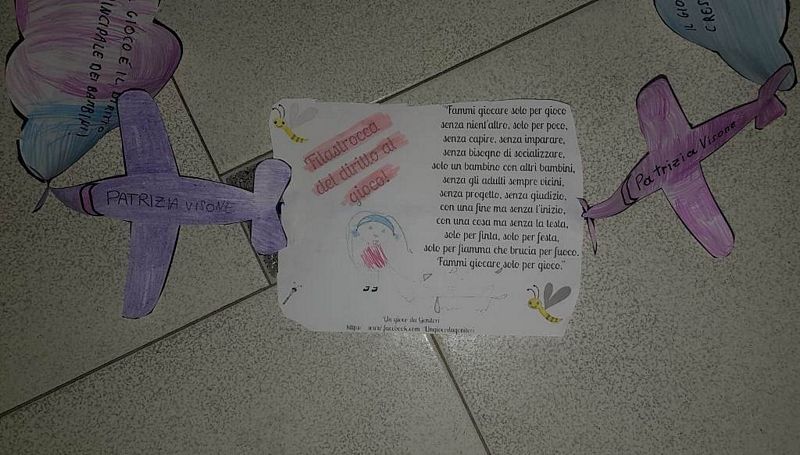 GIOCO È IL DIRITTO
PRINCIPALE DEI BAMBINI
PATRIZIA VISONE
Filastrocca
del diritto al
gioco!
"Fammi giocare solo per gioco
senza nient'altro, solo per poco,
senza capire, senza imparare,
senza bisogno di socializzare,
solo un bambino con altri bambini,
senza gli adulti sempre vicini,
senza progetto, senza giudizio,
con una fine ma senza l'inizio,
con una coda ma senza la testa,
solo per finta, solo per festa,
solo per fiamma che brucia per fuoco.
Fammi giocare solo per gioco."
Un gioco da Genitori
https: www.facebook.com
Patrizia Visone
IL GIO
CRES